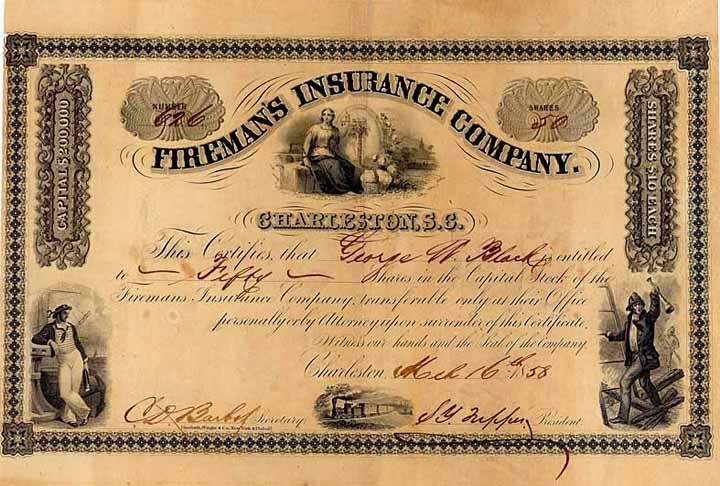 NUMBER
626
SHARES
50
FIREMAN'S INSURANCE COMPANY.
CAPITAL $300,000
SHARES $10 EACH
CHARLESTON, S.C.
This Certifies, that George W. Black is entitled
to — Fifty — Shares in the Capital Stock of the
Firemans Insurance Company, transferable only at their Office
personally or by Attorney upon surrender of this Certificate.
Witness our hands and the Seal of the Company.
Charleston, Mch 16th 1858
Secretary.
S.Y. Tupper President.
Danforth, Wright & Co. New York &